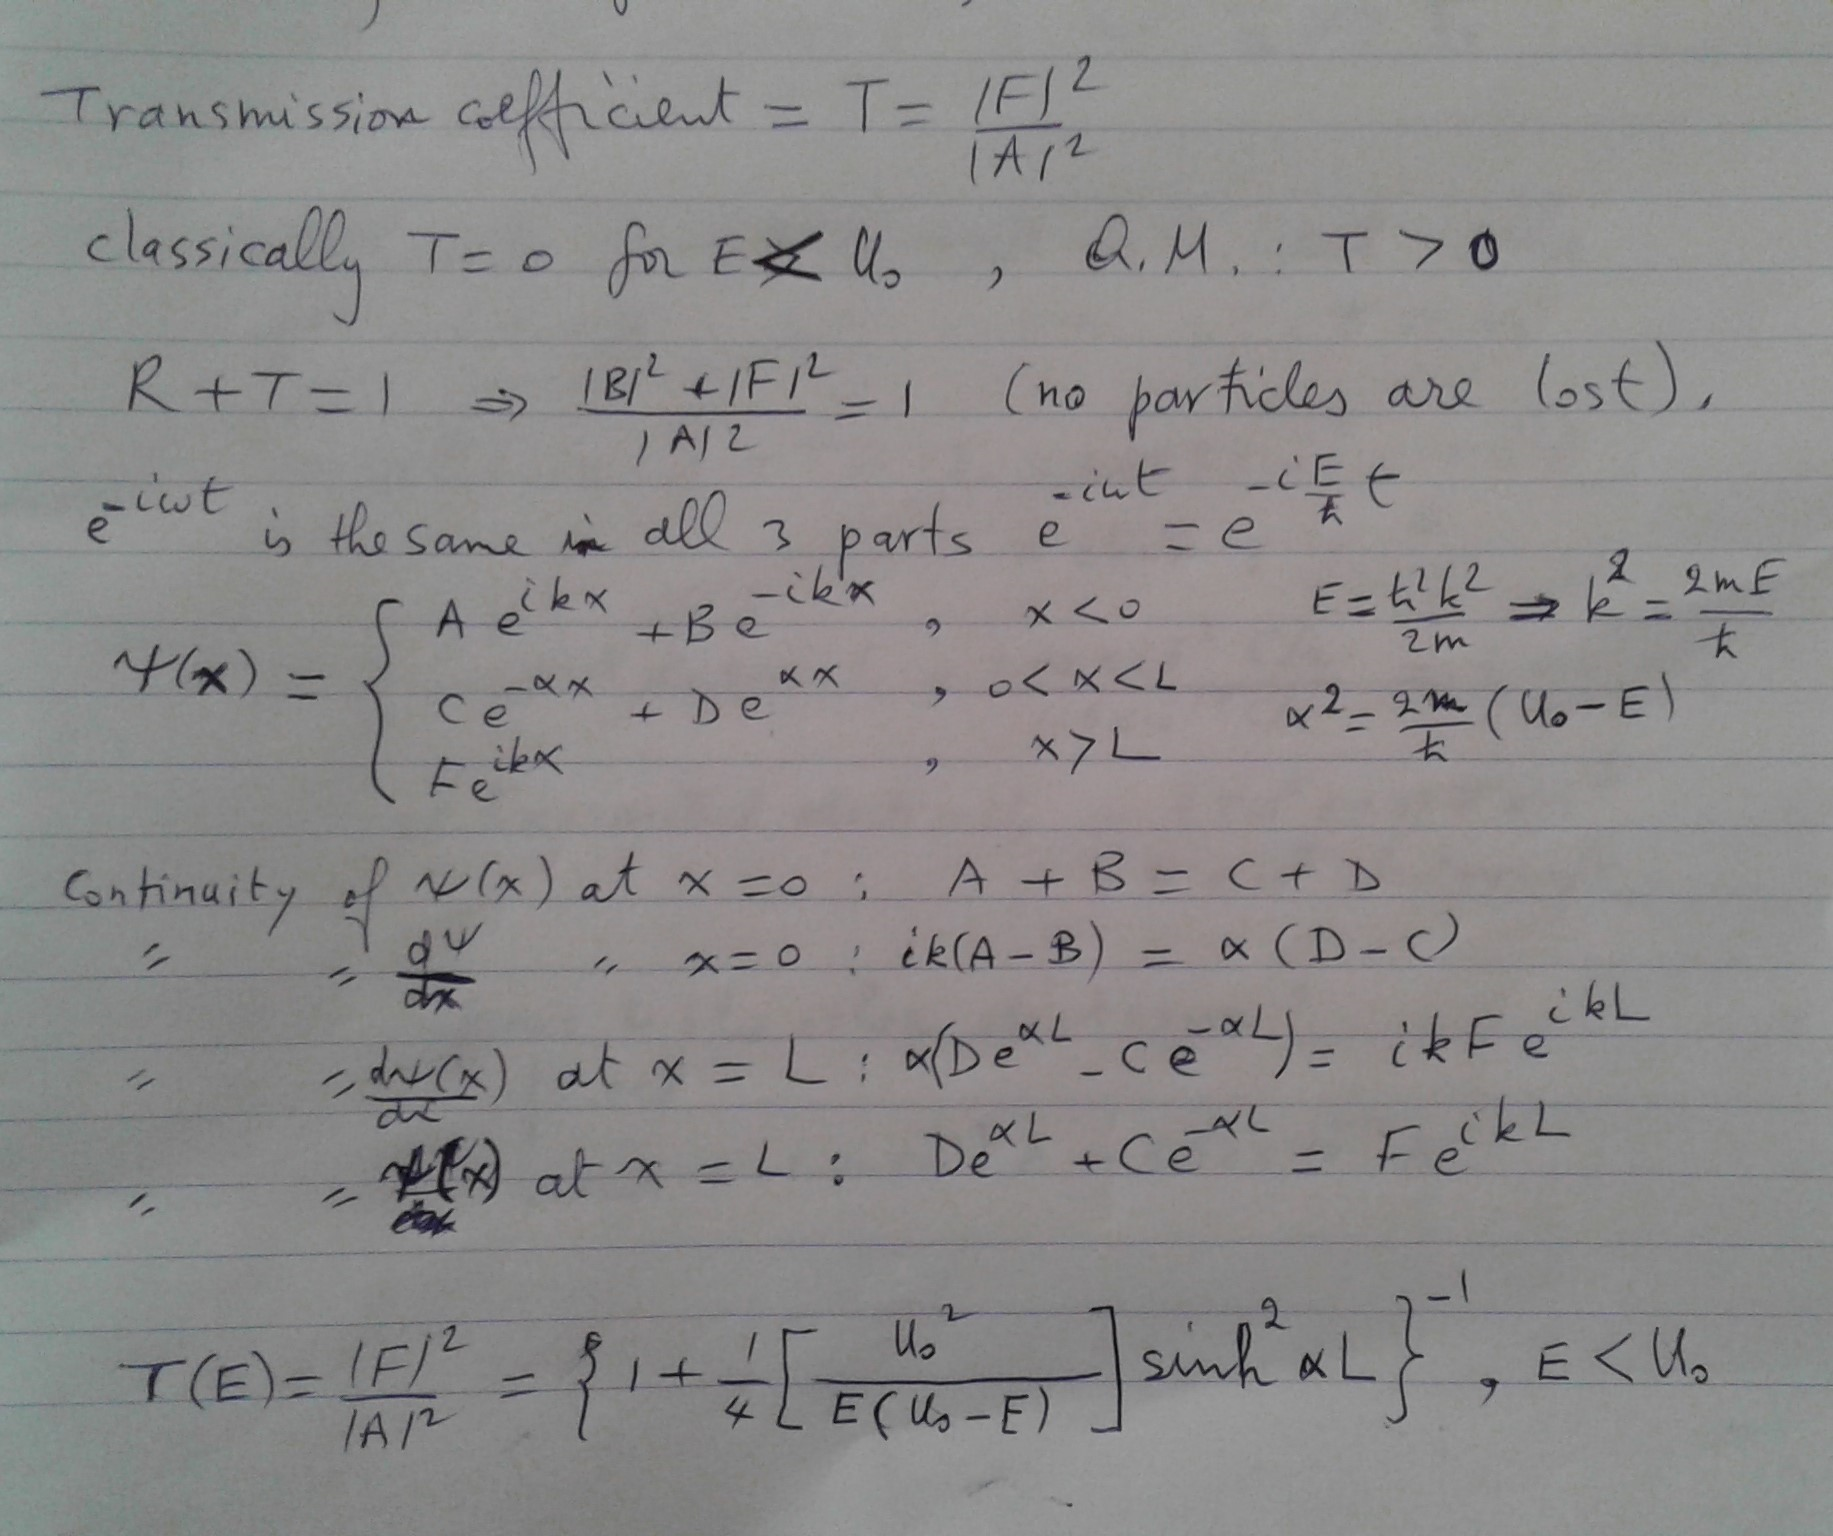 Transmission coefficient = T = |F|² / |A|²
classically T = 0 for E < U₀ , Q.M. : T > 0
R + T = 1 ⇒ (|B|² + |F|²) / |A|² = 1 (no particles are lost).
e^{-iωt} is the same in all 3 parts e^{-iωt} = e^{-i(E/ħ)t}
ψ(x) = { A e^{ikx} + B e^{-ikx} , x < 0 E = ħ²k²/2m ⇒ k² = 2mE/ħ
C e^{-αx} + D e^{αx} , 0 < x < L α² = (2m/ħ)(U₀ - E)
F e^{ikx} , x > L
Continuity of ψ(x) at x = 0 : A + B = C + D
〃 〃 dψ/dx 〃 x = 0 : ik(A - B) = α(D - C)
〃 〃 dψ(x)/dx at x = L : α(De^{αL} - Ce^{-αL}) = ikFe^{ikL}
〃 〃 ψ(x) at x = L : De^{αL} + Ce^{-αL} = Fe^{ikL}
T(E) = |F|² / |A|² = {1 + 1/4 [U₀² / E(U₀ - E)] sinh² αL}^{-1} , E < U₀